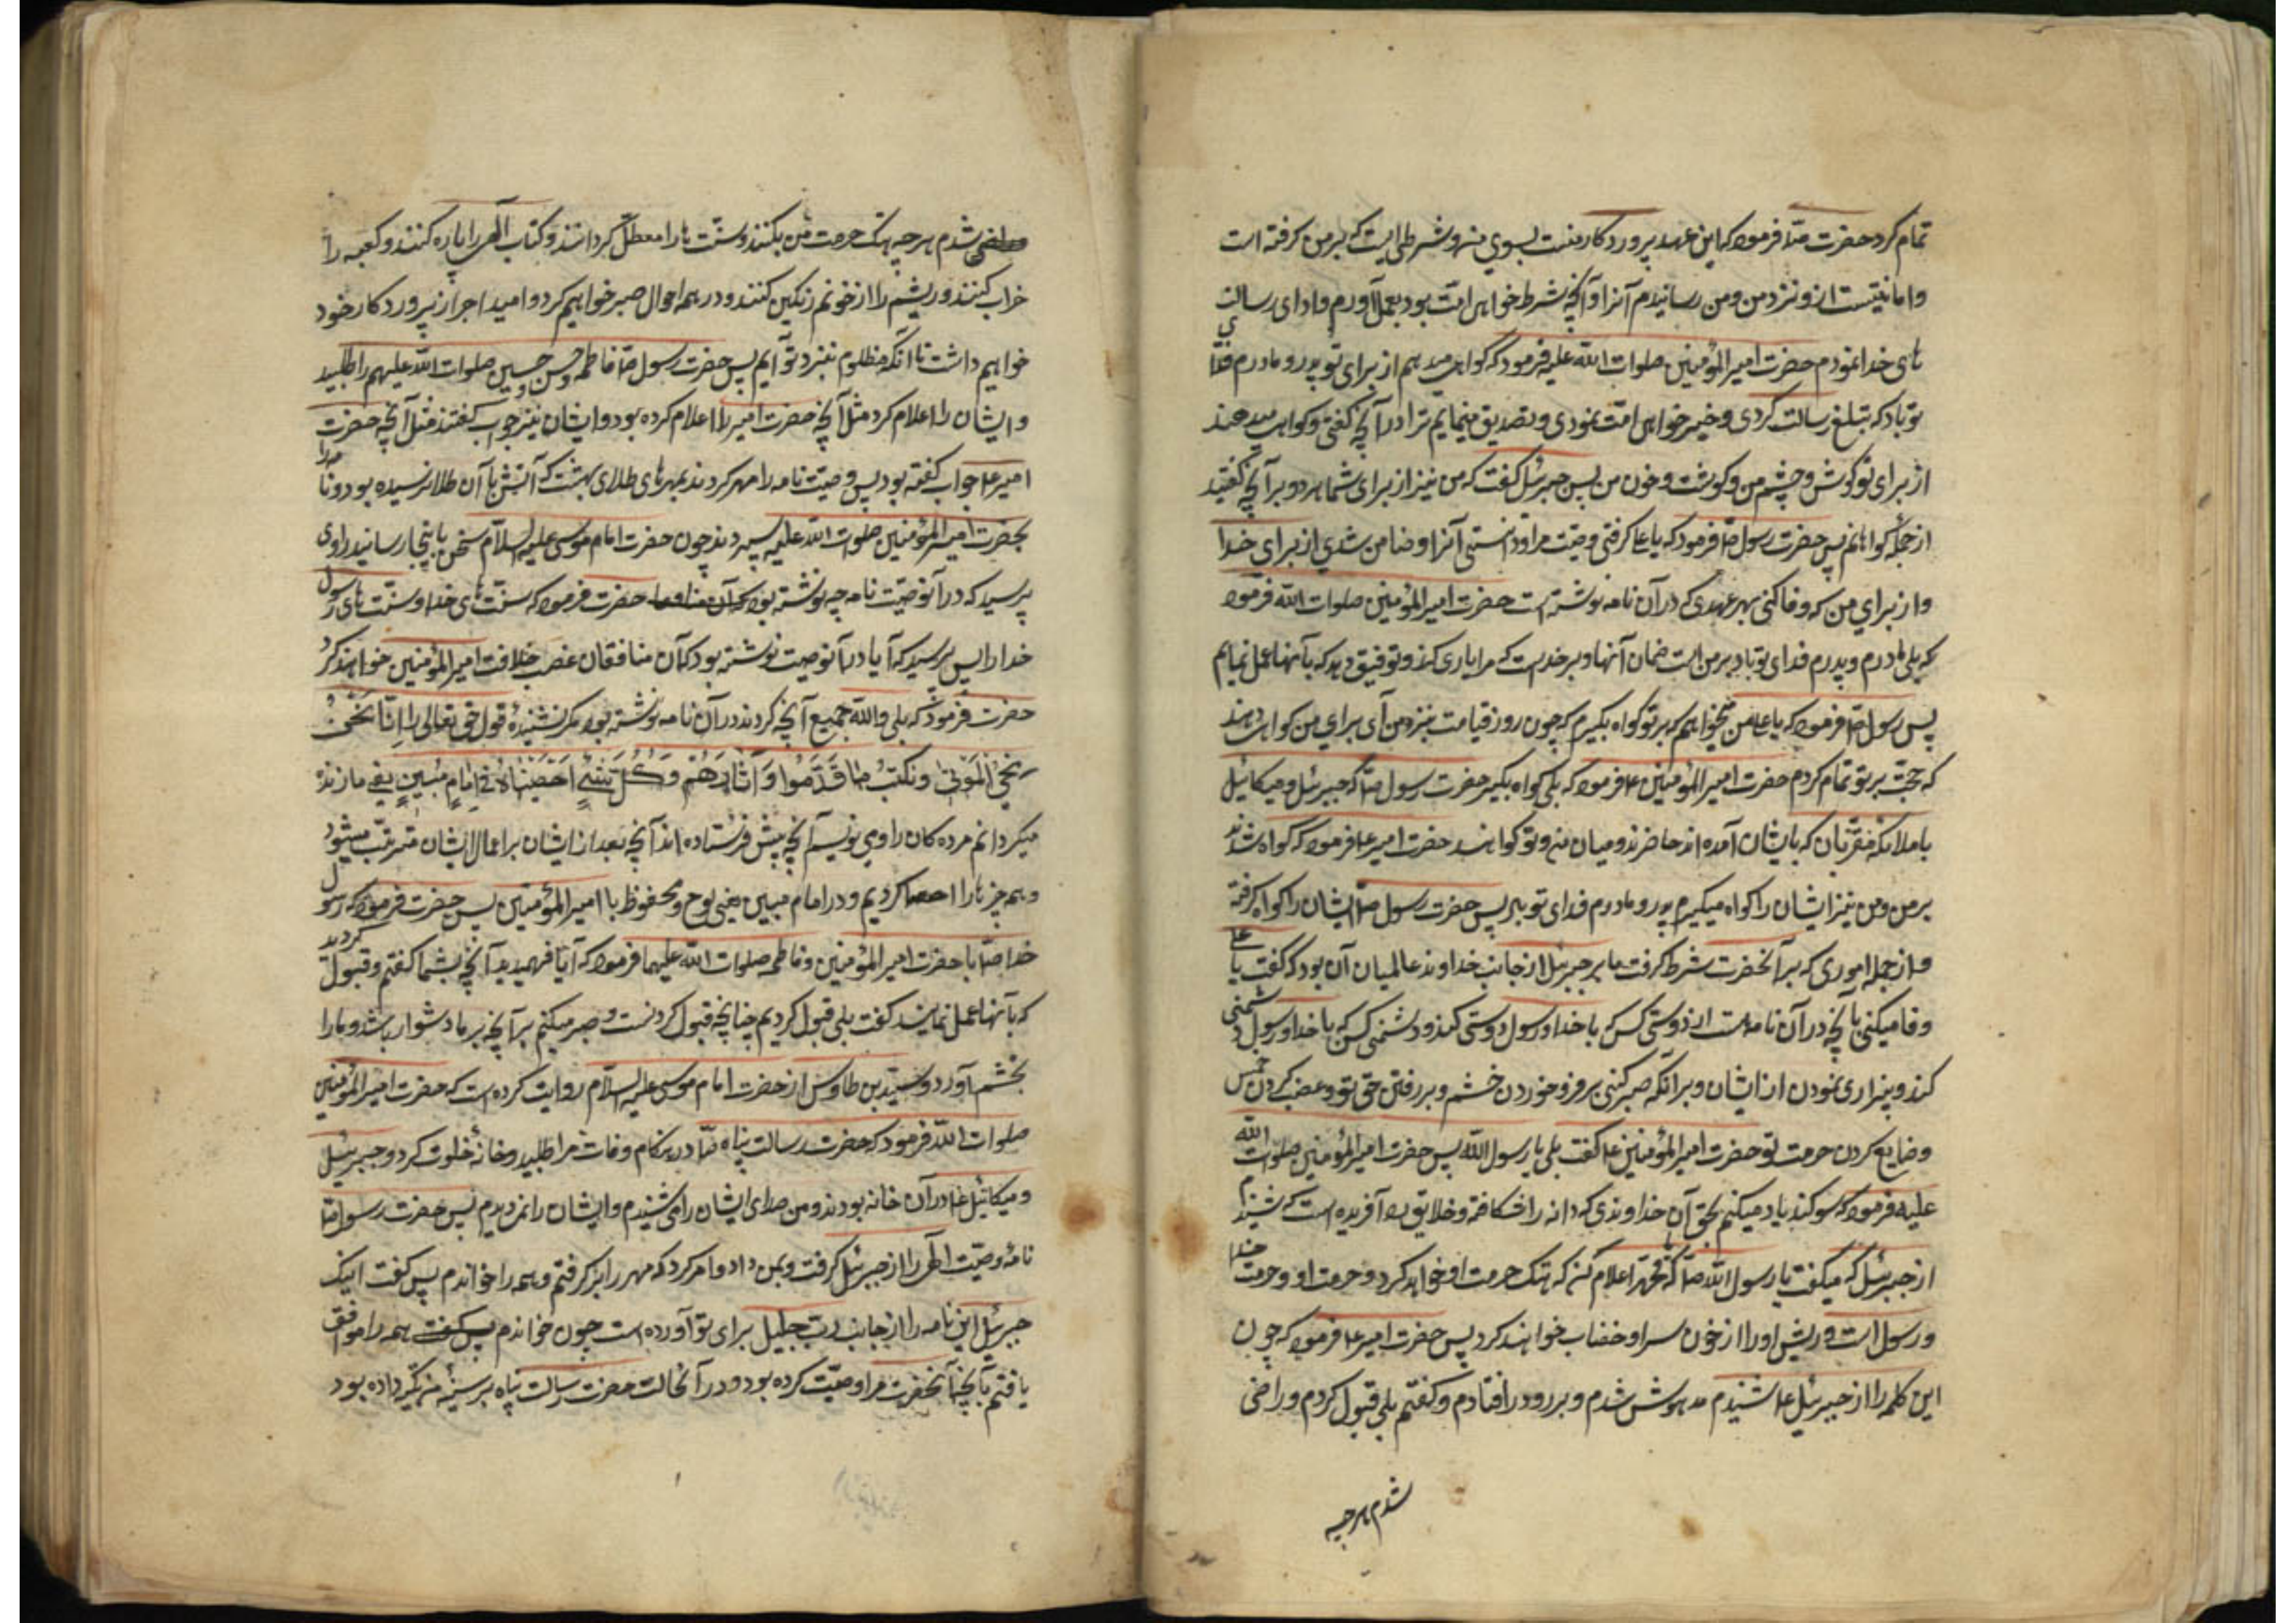 تمام کرد حضرت صآ فرمود که این عهد پرورد کار منست بسوي من و شرطی ایست که بر من کرفته است
و امانتیست از و نزد من و من رسانیدم آنرا و آنچه شرط خواهی امّت بود بعمل آوردم و ادای رسالت
های خدا نمودم حضرت امیر المؤمنین صلوات الله علیه فرمود که کواهی میدهم از برای تو پدر و مادرم فدای
تو باد که تبلیغ رسالت کردی و خیر خواهی امّت نمودی و تصدیق مینمایم ترا در آنچه کفتی و کواهی میدهند
از برای تو کوش و چشم من و کوشت و خون من پس جبرئیل کفت که من نیز از برای شما هر دو بر آنچه کفتید
از جمله کواهانم پس حضرت رسول صآ فرمود که یا علی کرفتی وصیّت مرا و دانستی آنرا و ضامن شدي از برای خدا
و از براي من که وفا کنی بهر عهدی که در آن نامه نوشته است حضرت امیر المؤمنین صلوات الله فرمود
که بلی مادرم و پدرم فدای تو باد بر من است ضمان آنها و بر خداست که مرا یاری کند و توفیق دهد که بآنها عمل نمایم
پس رسول صآ فرمود که یا علی من میخواهم که بر تو کواه بکیرم که چون روز قیامت بنزد من آی براي من کواهی دهند
که حجّت بر تو تمام کردم حضرت امیر المؤمنین ع فرمود که بلی کواه بکیر حضرت رسول صآ که جبرئیل و میکائیل
با ملائکه مقرّبان که با ایشان آمده اند حاضرند و میان من و تو کواهند حضرت امیر ع فرمود که کواه شوند
بر من و من نیز ایشان را کواه میکیرم پدر و مادرم فدای تو باد پس حضرت رسول صآ ایشان را کواه کرفته
و از جمله اموری که بر آنحضرت شرط کرفت بامر جبرئیل از جانب خداوند عالمیان آن بود که کفت یا علی
وفا میکنی بآنچه در آن نامه است از دوستی کسی که با خدا و رسول دوستی کند و دشمنی کسی که با خدا و رسول دشمنی
کند و بیزاری نمودن از ایشان و بر آنکه صبر کنی بر فرو خوردن خشم و بر رفتن حقّ تو و غصب کردن خمس
و ضایع کردن حرمت تو حضرت امیر المؤمنین ع کفت بلی یا رسول الله پس حضرت امیر المؤمنین صلوات الله
علیه فرمود که سوکند یاد میکنم بحقّ آن خداوندی که دانه را شکافته و خلایق را آفریده است که شنیدم
از جبرئیل که میکفت یا رسول الله صآ که یا محمّد اعلام کن که هتک حرمت او خواهد کرد و حرمت او و حرمت خدا
و رسول است و ریش او را از خون سر او خضاب خواهند کرد پس حضرت امیر ع فرمود که چون
این کلمه را از جبرئیل ع شنیدم مدهوش شدم و بر رو در افتادم و کفتم بلی قبول کردم و راضی
شدم هر چه
شدم هر چه هتک حرمت من بکنند و سنّت ها را معطّل کردانند و کتاب الهی را پاره کنند و کعبه را
خراب کنند و ریشم را از خونم رنکین کنند و در همه احوال صبر خواهیم کرد و امید اجر از پرورد کار خود
خواهیم داشت تا آنکه مظلوم بنزد تو آیم پس حضرت رسول صآ فاطمه و حسن و حسین صلوات الله علیهم را طلبید
و ایشان را اعلام کرد مثل آنچه حضرت امیر را اعلام کرده بود و ایشان نیز جواب کفتند مثل آنچه حضرت
امیر ع جواب کفته بود پس وصیّت نامه را مهر کردند بمهرهای طلای بهشت که آتش بآن طلا نرسیده بود و نامه را
بحضرت امیر المؤمنین صلوات الله علیه سپردند چون حضرت امام موسی علیه السلام سخن باینجا رسانید راوی
پرسید که در آن وصیّت نامه چه نوشته بود حضرت فرمود که سنّت های خدا و سنّت های رسول
خدا را پس پرسید که آیا در آن وصیت نوشته بود که آن منافقان غصب خلافت امیر المؤمنین خواهند کرد
حضرت فرمود که بلی والله جمیع آنچه کردند در آن نامه نوشته بود مکر نشنیدۀ قول حق تعالی را اِنّا نَحْنُ
نُحْیِ الْمَوْتی وَنَکْتُبُ ما قَدَّمُوا وَآثارَهُمْ وَکُلَّ شَیْءٍ اَحْصَیْناهُ فی اِمامٍ مُبینٍ یعنی ما زنده
میکردانم مرده کان را و می نویسیم آنچه پیش فرستاده اند آنچه بعد از ایشان بر اعمال ایشان مترتّب میشود
و همه چیزها را احصا کردیم و در امام مبین یعنی لوح محفوظ یا امیر المؤمنین پس حضرت فرمود که رسول
خدا صآ با حضرت امیر المؤمنین و فاطمه صلوات الله علیهما فرمود که آیا فهمیدید آنچه بشما کفتم و قبول کردید
که بآنها عمل نمایند کفت بلی قبول کردیم چنانچه قبول کردنست و صبر میکنیم بر آنچه بر ما دشوار باشد و ما را
بخشم آورد و سیّد بن طاوس از حضرت امام موسی علیه السلام روایت کرده است که حضرت امیر المؤمنین
صلوات الله فرمود که حضرت رسالت پناه صآ در هنکام وفات مرا طلبید و خانه خلوت کرد و جبرئیل
و میکائیل ع در آن خانه بودند و من صدای ایشان را می شنیدم و ایشان را نمی دیدم پس حضرت رسول صآ
نامۀ وصیّت الهی را از جبرئیل کرفت و بمن داد و امر کرد که مهر را بر کرفتم و همه را خواندم پس کفت اینک
جبرئیل این نامه را از جانب ربّ جلیل برای تو آورده است چون خواندم همه را موافق
یافتم بآنچه آنحضرت مرا وصیّت کرده بود و در آنحالت حضرت رسالت پناه بر سینۀ من تکیه داده بود